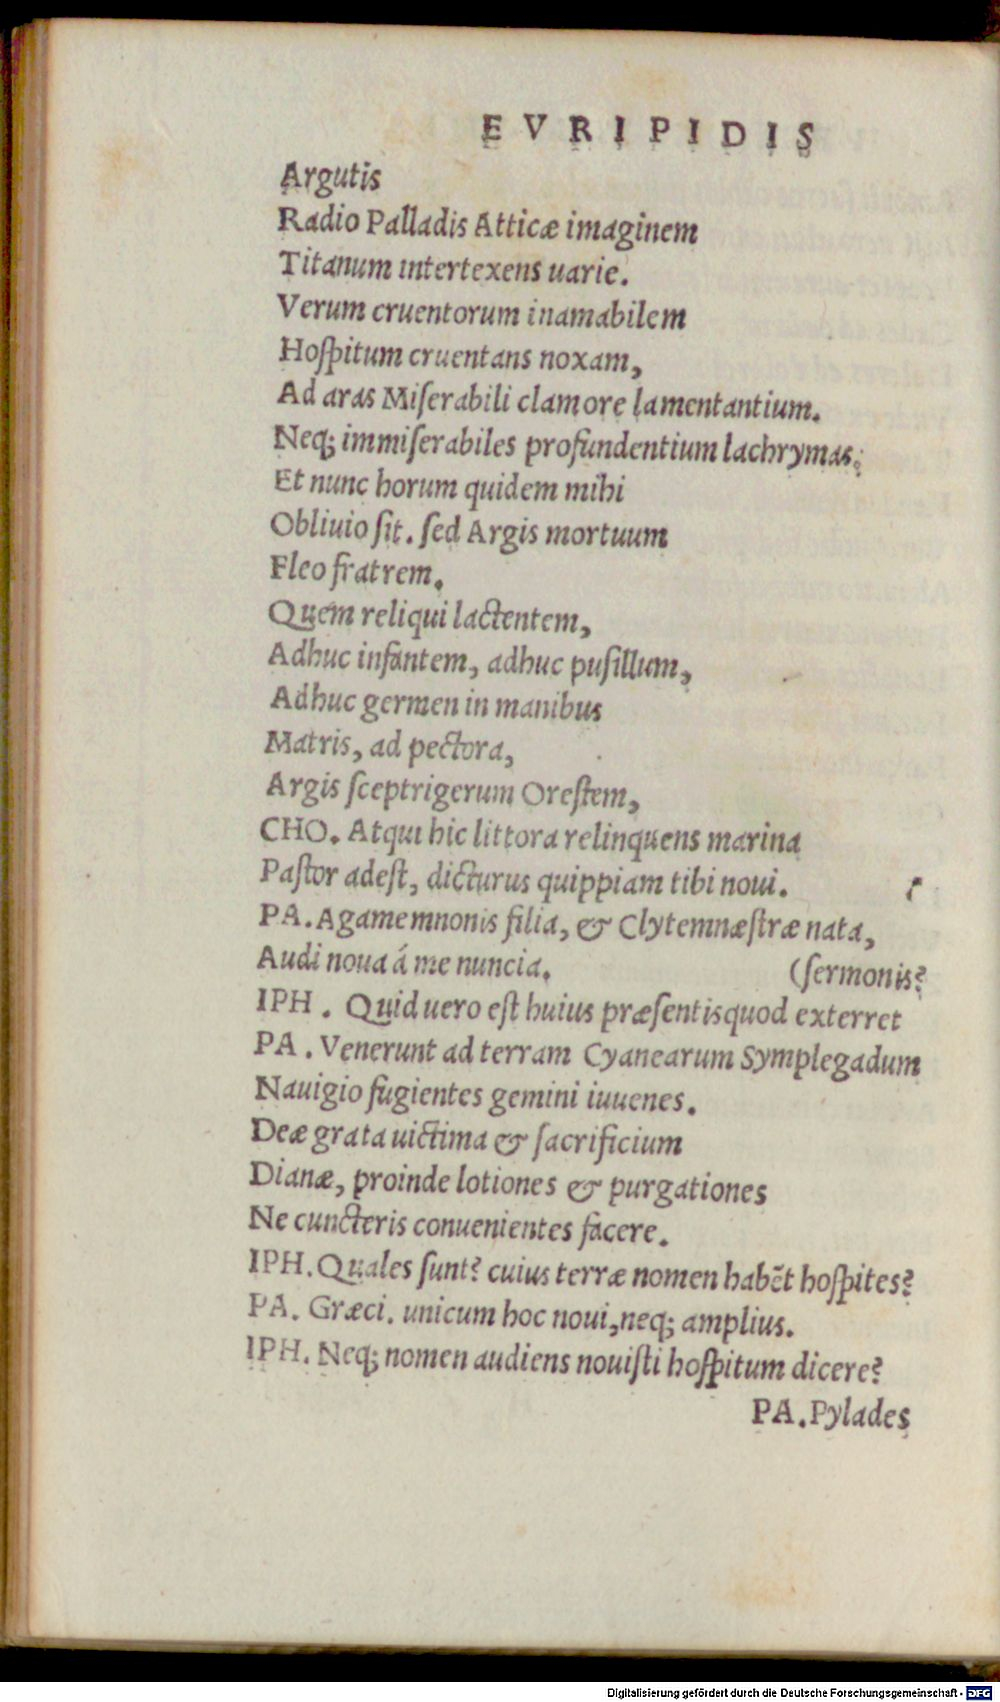 EVRIPIDIS
Argutis
Radio Palladis Atticæ imaginem
Titanum intertexens uarie.
Verum cruentorum inamabilem
Hoſpitum cruentans noxam,
Ad aras Miſerabili clamore lamentantium.
Neq; immiſerabiles profundentium lachrymas.
Et nunc horum quidem mihi
Obliuio ſit. ſed Argis mortuum
Fleo fratrem.
Quem reliqui lactentem,
Adhuc infantem, adhuc puſillum,
Adhuc germen in manibus
Matris, ad pectora,
Argis ſceptrigerum Oreſtem,
CHO. Atqui hic littora relinquens marina
Paſtor adeſt, dicturus quippiam tibi noui.
PA. Agamemnonis filia, & Clytemnæſtræ nata,
Audi noua á me nuncia. (ſermonis?
IPH. Quid uero eſt huius præſentis quod exterret
PA. Venerunt ad terram Cyanearum Symplegadum
Nauigio fugientes gemini iuuenes.
Deæ grata uictima & ſacrificium
Dianæ, proinde lotiones & purgationes
Ne cuncteris conuenientes facere.
IPH. Quales ſunt? cuius terræ nomen habẽt hoſpites?
PA. Græci. unicum hoc noui, neq; amplius.
IPH. Neq; nomen audiens nouiſti hoſpitum dicere?
PA. Pylades
Digitalisierung gefördert durch die Deutsche Forschungsgemeinschaft - DFG